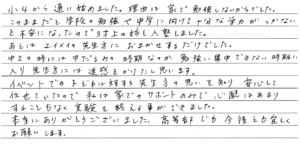 小4から通い始めました。理由は家で勉強しないからでした。
このままだと学校の勉強や中学に向けて十分な学力がつかない
と不安になったので3才上の姉と入塾しました。
あとはエイメイの先生方におまかせするだけでした。
中2の時には中だるみの時期なのか勉強に集中できない時期に
入り先生方には迷惑をかけたと思います。
イベントでの子どもに対する先生方の思いを知り安心して
任せていたので私は家でのサポートのみで、心配はあまり
することもなく受験を終える事ができました。
本当にありがとうございました。高等部でも今後とも宜しく
お願いします。